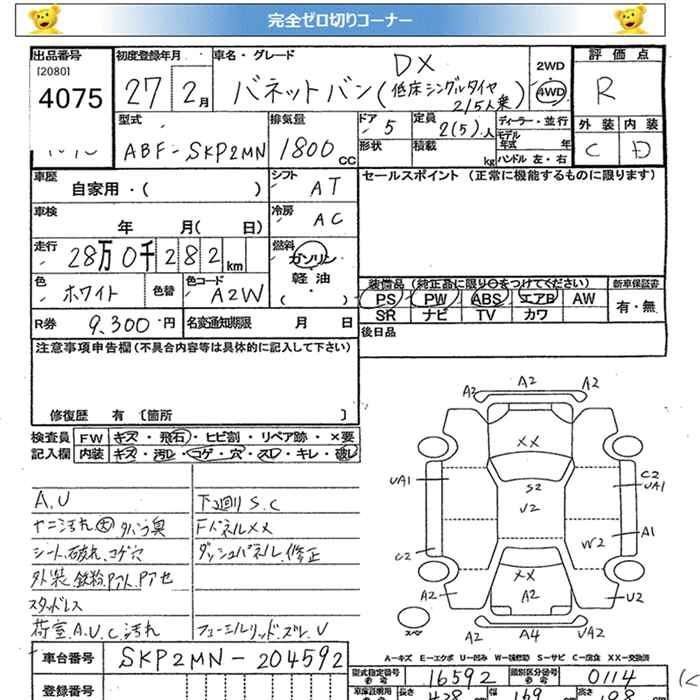 完全ゼロ切りコーナー
出品番号
[2080]
4075
初度登録年月
27 2月
車名・グレード
DX
バネットバン(低床シングルタイヤ
2/5人乗)
2WD
4WD
評価点
R
外装 内装
C D
型式
ABF-SKP2MN
排気量
1800 CC
ドア 5
形状
定員 2(5)人
積載 kg
ディーラー・並行
モデル
年式 年
ハンドル 左・右
車歴
自家用・( )
シフト AT
セールスポイント (正常に機能するものに限ります)
車検
年 月( 日)
冷房 AC
走行
28万0千282km
燃料
ガソリン
軽油
( )
色
ホワイト
色替
色コード
A2W
装備品 (純正品に限り○をつけてください)
PS PW ABS エアB AW
SR ナビ TV カワ
新車保証書
有・無
R券 9,300円
名変通知期限 月 日
後日品
注意事項申告欄(不具合内容等は具体的に記入して下さい)
修復歴 有 〔箇所 〕
検査員
記入欄
FW キズ・飛石・ヒビ割・リペア跡・×要
内装 キズ・汚レ・コゲ・穴・スレ・キレ・破レ
A.U
ヤニ汚れ大 タバコ臭
シート、破れ、コゲ穴
外装 鉄粉、Pアト、Pアセ
スタッドレス
荷室.A.U.C.汚れ
下廻りS.C
FパネルXX
ダッシュパネル修正
フューエルリッド.ズレ.V
A2 A2 A2
XX
S2
V2
UA1
C2
UA1
A1
W2
C2
XX
A2
A2
U2
A2 A4 A2
スペア
A-キズ E-エクボ U-凹み W-補修跡 S-サビ C-腐食 XX-交換済
車台番号 SKP2MN-204592
登録番号
型式指定番号 16592
類別区分番号 0114
車庫証明用
参考
長さ 428
幅 169
高さ 198